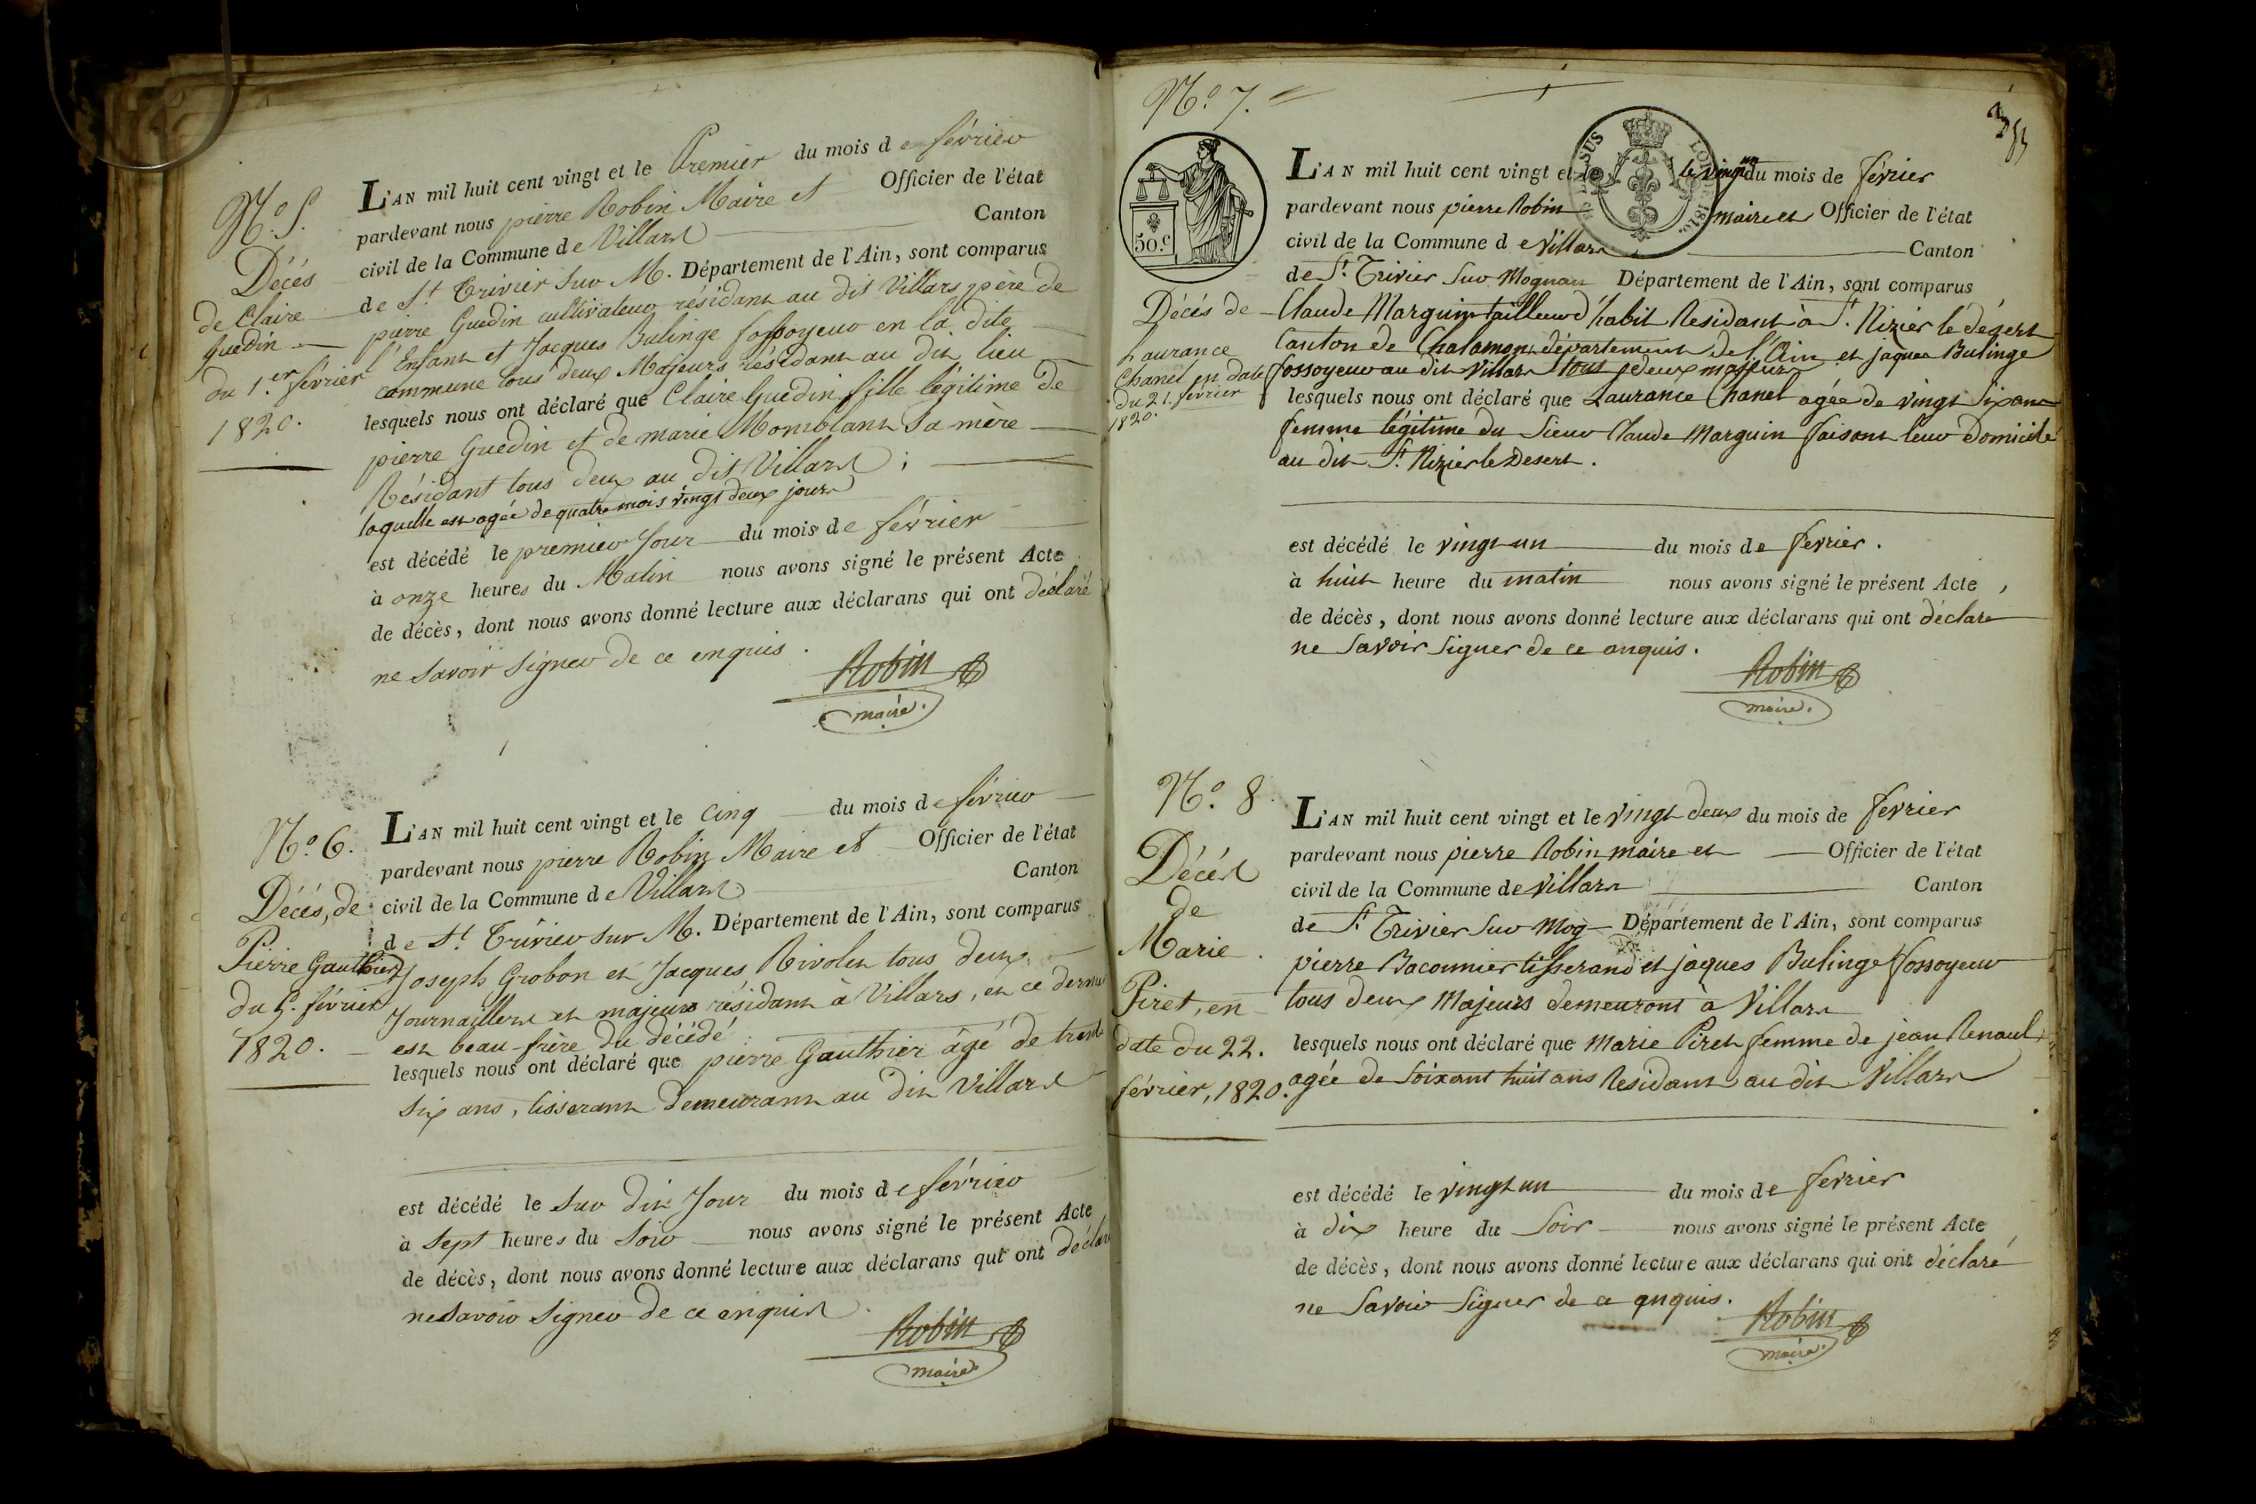 N.o 5.
Décés
de Claire
Guedin
du 1.er février
1820.
L'AN mil huit cent vingt et le Premier du mois de février
pardevant nous pierre Robin Maire et Officier de l'état
civil de la Commune de Villars Canton
de St. Trivier sur M. Département de l'Ain, sont comparus
pierre Guedin cultivateur résidant au dit Villars père de
l'Enfant et Jacques Bulinge fossoyeur en la dite
commune tous deux Majeurs résidant au dit lieu
lesquels nous ont déclaré que Claire Guedin fille légitime de
pierre Guedin et de marie Momblant sa mère
Résidant tous deux au dit Villars ;
laquelle est agée de quatre mois vingt deux jours
est décédé le premier Jour du mois de février
à onze heures du Matin nous avons signé le présent Acte
de décès, dont nous avons donné lecture aux déclarans qui ont déclaré
ne savoir signer de ce enquis.
Robin
maire.
N.o 6.
Décés, de
Pierre Gauthier
du 5. février
1820.
L'AN mil huit cent vingt et le Cinq du mois de février
pardevant nous pierre Robin Maire et Officier de l'état
civil de la Commune de Villars Canton
de St. Trivier sur M. Département de l'Ain, sont comparus
Joseph Grobon et Jacques Rivolet tous deux
Journaillers et majeurs résidant à Villars, et ce dernier
est beau-frère du décédé
lesquels nous ont déclaré que pierre Gauthier âgé de trente
six ans, tisserant demeurant au dit Villars
est décédé le sus dit Jour du mois de février
à sept heures du Soir nous avons signé le présent Acte
de décès, dont nous avons donné lecture aux déclarans qui ont déclaré
ne savoir signer de ce enquis
Robin
maire
N.o 7.
50.c
Décés de
Laurance
Chanel en date
du 21. fevrier
1820.
L'AN mil huit cent vingt et le vingt un du mois de février
pardevant nous pierre Robin maire et Officier de l'état
civil de la Commune de Villars Canton
de St. Trivier sur Mognan Département de l'Ain, sont comparus
Claude Marguin tailleur d'habit Residant à St. Nizier le désert
Canton de Chalamon département de l'Ain et jaques Bulinge
fossoyeur au dit Villars tous deux majeurs
lesquels nous ont déclaré que Laurance Chanel agée de vingt six ans
femme légitime du Sieur Claude Marguin faisant leur domicile
au dit St. Nizier le Desert.
est décédé le vingt un du mois de fevrier.
à huit heure du matin nous avons signé le présent Acte,
de décès, dont nous avons donné lecture aux déclarans qui ont déclaré
ne Savoir Signer de ce anquis.
Robin
maire.
N.o 8
Décés
de
Marie
Piret, en
date du 22.
février, 1820.
L'AN mil huit cent vingt et le vingt deux du mois de fevrier
pardevant nous pierre Robin maire et Officier de l'état
civil de la Commune de Villars Canton
de St. Trivier sur Mog Département de l'Ain, sont comparus
pierre Baconnier tisserand et jaques Bulinge fossoyeur
tous deux Majeurs demeurant à Villars
lesquels nous ont déclaré que Marie Piret femme de jean Renaul
agée de Soixant huit ans Residant au dit Villars
est décédé le vingt un du mois de fevrier
à dix heure du Soir nous avons signé le présent Acte
de décès, dont nous avons donné lecture aux déclarans qui ont déclaré
ne Savoir Signer de ce anquis.
Robin
maire.